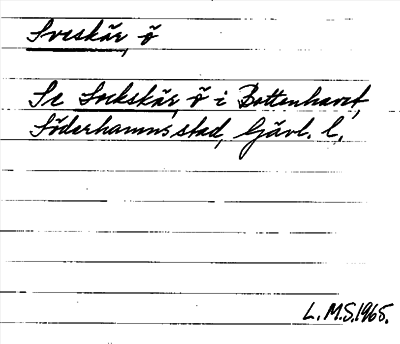 Sveskär, ö
Se Sockskär, ö i Bottenhavet,
Söderhamns stad, Gävl. l.
L.M.S. 1965.